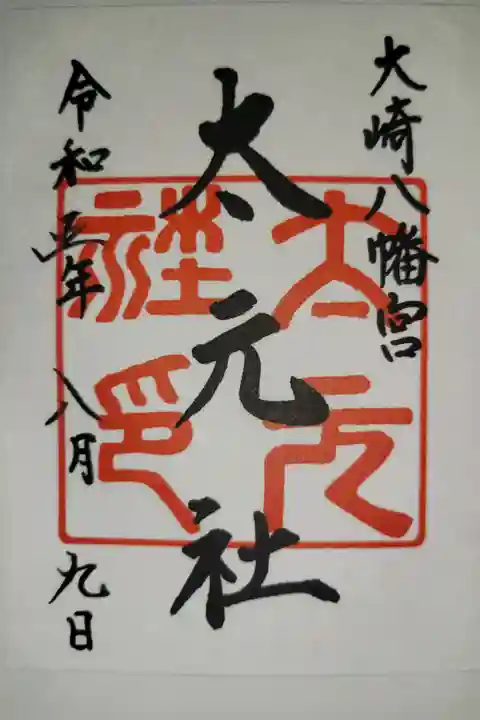 大崎八幡宮
太元社
令和五年 八月 九日
太元社印